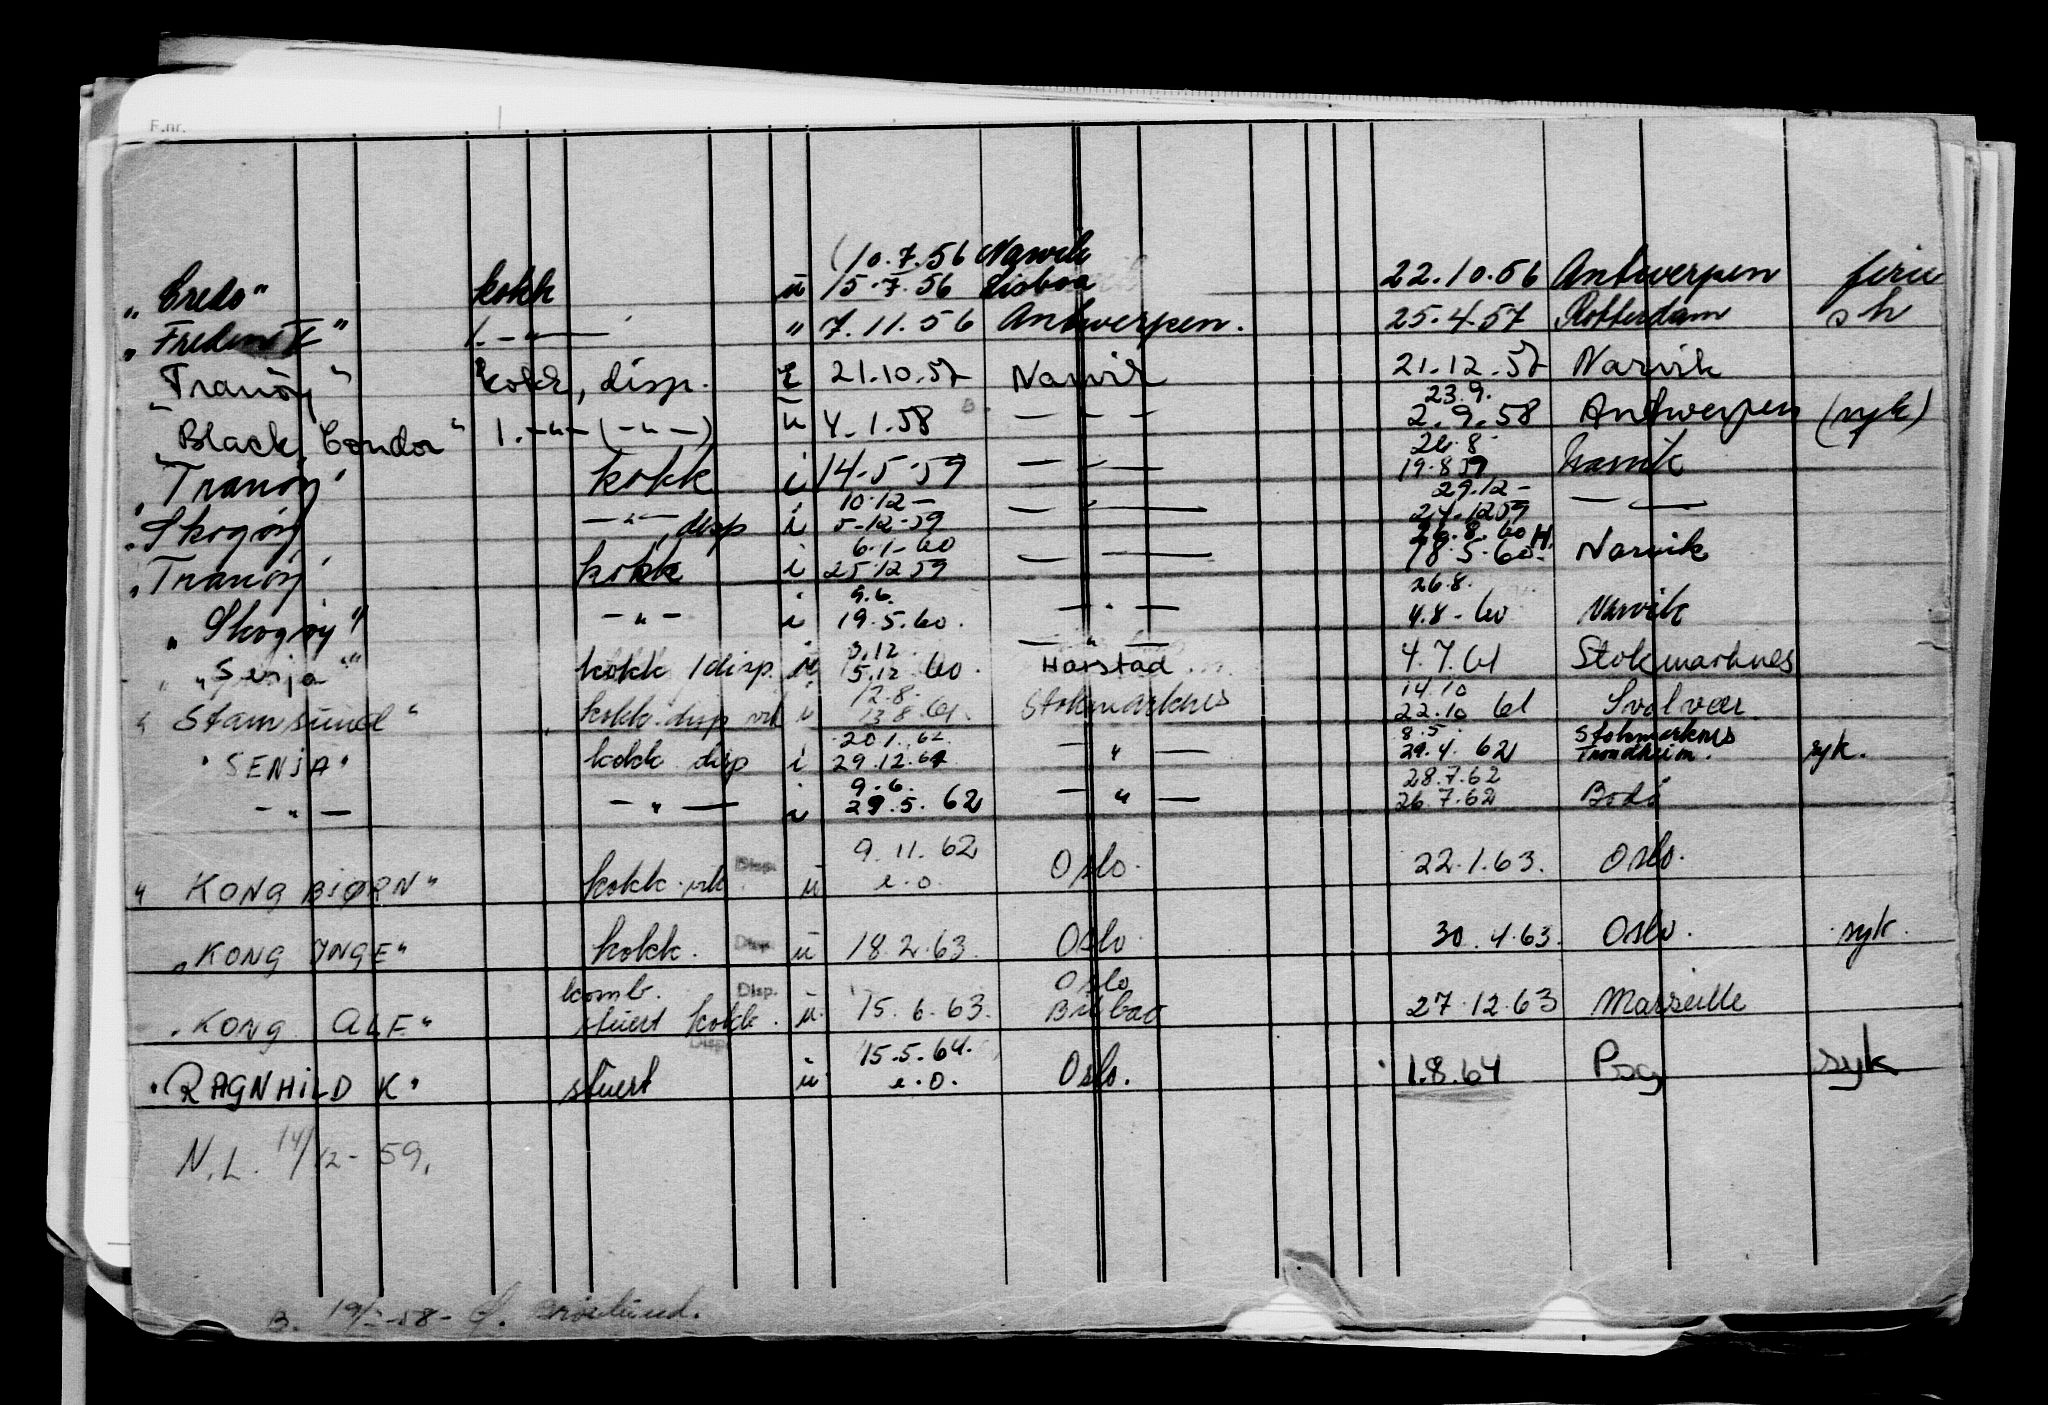 F.nr.
(10.7.56 Narvik
"Credo" kokk u 15.7.56 Lisboa 22.10.56 Antwerpen ferie
" 1. -"- " 7.11.56 Antwerpen. 25.4.57 Rotterdam sh
"Tranøy" kokk, disp. 21.10.57 Narvik 21.12.57 Narvik
23.9.
"Black Condor" 1. -"- (-"-) u 4.1.58 - " - 2.9.58 Antwerpen (syk)
26.8
"Tranøy" kokk i 14.5.59 - " - 19.8.59 Narvik
10.12 - 29.12 -
"Skogøy -"-, disp i 5-12-59 - " - 24.12.59 - " -
6.1-60 26.8.60 H.
"Tranøy" kokk i 25.12.59 - " - 18.5.60. Narvik
9.6. 26.8.
"Skogøy" - " - i 19.5.60. - " - 4.8-60 Narvik
3.12. - " -
"Senja" kokk /disp. u 15.12.60. Harstad 4.7.61 Stokmarknes
12.8. 14.10
"Stamsund" kokk disp vik i 13.8.61. Stokmarknes 22.10 61 Svolvær.
20.1.62. 8.5. Stokmarknes
"SENJA" kokk disp i 29.12.61 - " - 29.4.62 Trondheim. syk.
9.6. 28.7.62
- " - - " - i 29.5.62 - " - 26.7.62 Bodø
Disp. 9.11.62
"KONG BJØRN" kokk vik u e.o. Oslo. 22.1.63. Oslo.
"KONG INGE" kokk. Disp. u 18.2.63. Oslo 30.4.63. Oslo. syk.
komb. Disp. Oslo
"KONG ALF" stuert kokk. u. 15.6.63. Bilbao 27.12.63 Marseille
Disp. 15.5.64.
"RAGNHILD K" stuert u e.o. Oslo. 1.8.64 Psg syk
N.L. 14/12-59.
B.